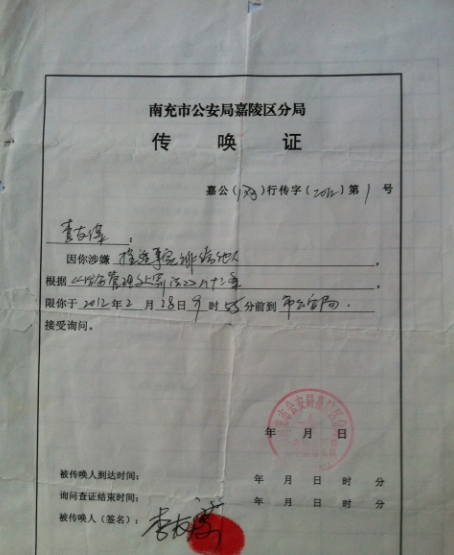 南充市公安局嘉陵区分局
传 唤 证
嘉公(网)行传字(2012)第1号
李友:
因你涉嫌 捏造事实诽谤他人。
根据 治安管理处罚法82、83条
限你于2012年2月28日9时55分前到市公安局。
接受询问。
年 月 日
被传唤人到达时间: 年 月 日 时 分
询问查证结束时间: 年 月 日 时 分
被传唤人(签名): 李友